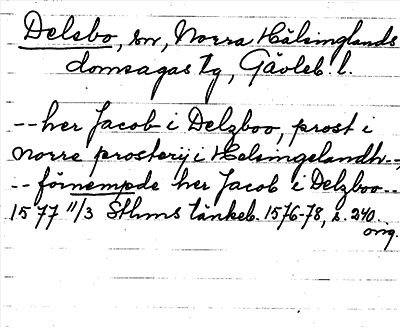 Delsbo, sn, Norra Hälsinglands
domsagas tg, Gävleb. l.
--her Jacob i Delzboo, prost i
norre prosterij i Helsingelandh--,
--förnempde her Jacob i Delzboo--
1577 11/3 Sthms tänkeb. 1576-78, s. 240.
orig.